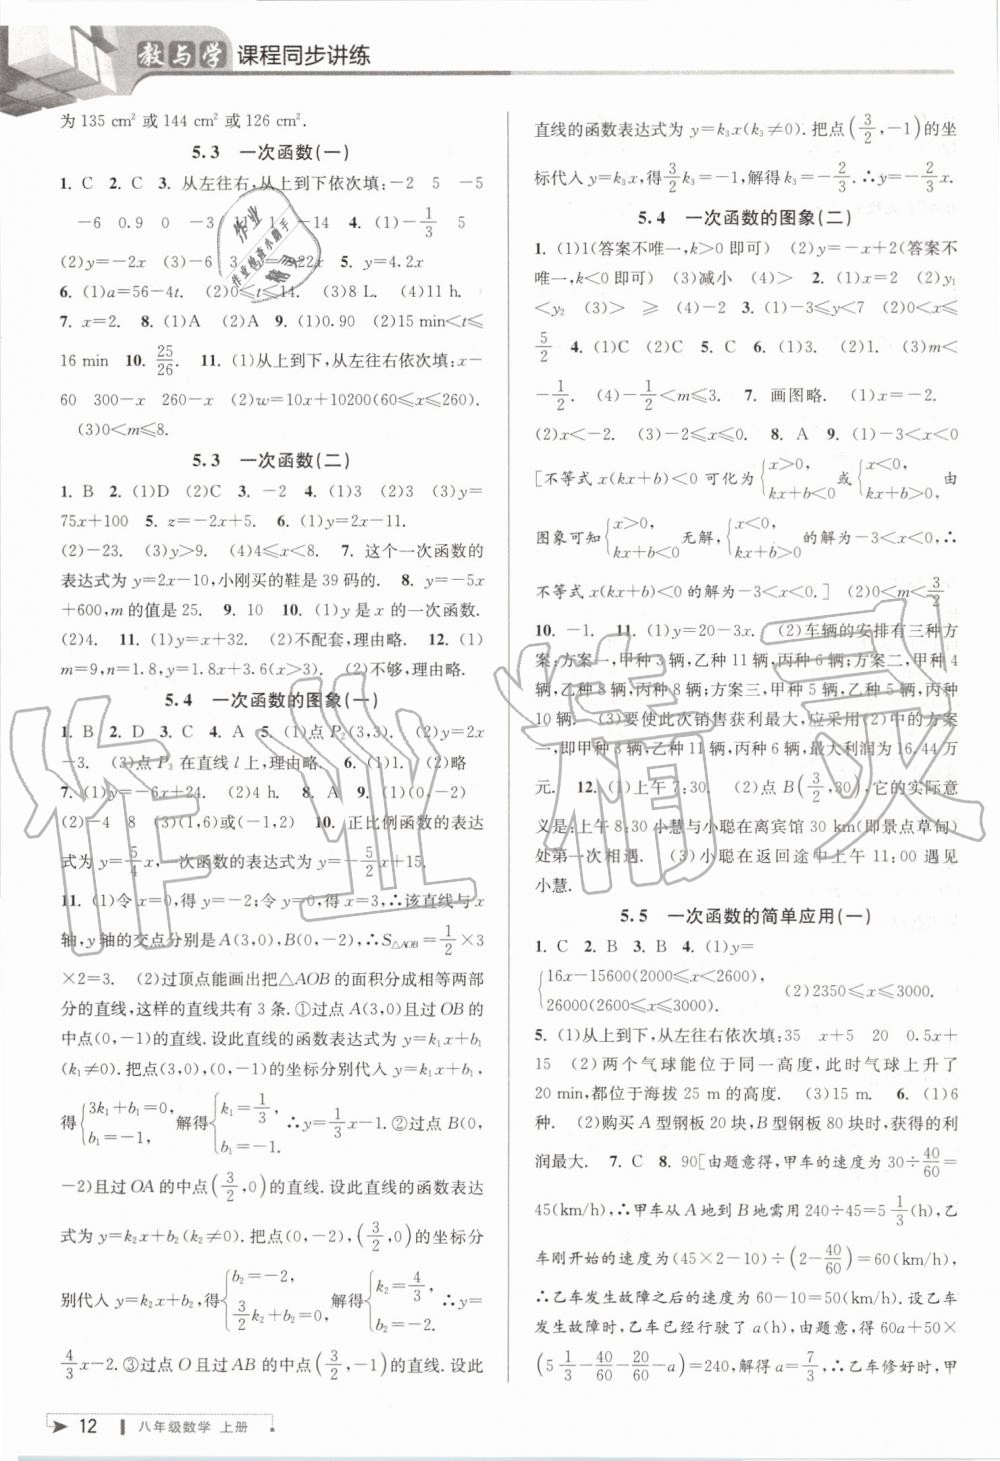 教与学 课程同步讲练
为 135 cm² 或 144 cm² 或 126 cm².
5.3 一次函数(一)
1. C 2. C 3. 从左往右,从上到下依次填:-2 5 -5
-6 0.9 0 -3 -14 4. (1)-1/3 5
(2)y=-2x (3) 5. y=4.2x
6. (1)a=56-4t. (2)0≤t≤14. (3)8 L. (4)11 h.
7. x=2. 8. (1)A (2)A 9. (1)0.90 (2)15 min<t≤
16 min 10. 25/26. 11. (1)从上到下,从左往右依次填:x-
60 300-x 260-x (2)w=10x+10200(60≤x≤260).
(3)0<m≤8.
5.3 一次函数(二)
1. B 2. (1)D (2)C 3. -2 4. (1)3 (2)3 (3)y=
75x+100 5. z=-2x+5. 6. (1)y=2x-11.
(2)-23. (3)y>9. (4)4≤x<8. 7. 这个一次函数的
表达式为 y=2x-10,小刚买的鞋是 39 码的. 8. y=-5x
+600,m 的值是 25. 9. 10 10. (1)y 是 x 的一次函数.
(2)4. 11. (1)y=x+32. (2)不配套,理由略. 12. (1)
m=9,n=1.8,y=1.8x+3.6(x>3). (2)不够,理由略.
5.4 一次函数的图象(一)
1. B 2. D 3. C 4. A 5. (1)点 P₂(3,3). (2)y=2x
-3. (3)点 P₃ 在直线 l 上,理由略. 6. (1)1. (2)略
7. (1)y=-6x+24. (2)4 h. 8. A 9. (1)(0,-2)
(2)-4 8 (3)(1,6)或(-1,-2) 10. 正比例函数的表达
式为 y=5/4x,一次函数的表达式为 y=-5/2x+15.
11. (1)令 x=0,得 y=-2;令 y=0,得 x=3,∴该直线与 x
轴,y 轴的交点分别是 A(3,0),B(0,-2),∴S△AOB=1/2×3
×2=3. (2)过顶点能画出把△AOB 的面积分成相等两部
分的直线,这样的直线共有 3 条.①过点 A(3,0)且过 OB 的
中点(0,-1)的直线. 设此直线的函数表达式为 y=k₁x+b₁
(k₁≠0). 把点(3,0),(0,-1)的坐标分别代入 y=k₁x+b₁,
得{3k₁+b₁=0, b₁=-1, 解得{k₁=1/3, b₁=-1. ∴y=1/3x-1.②过点 B(0,
-2)且过 OA 的中点(3/2,0)的直线. 设此直线的函数表达
式为 y=k₂x+b₂(k₂≠0). 把点(0,-2),(3/2,0)的坐标分
别代入 y=k₂x+b₂,得{b₂=-2, 3/2k₂+b₂=0, 解得{k₂=4/3, b₂=-2. ∴y=
4/3x-2.③过点 O 且过 AB 的中点(3/2,-1)的直线. 设此
直线的函数表达式为 y=k₃x(k₃≠0). 把点(3/2,-1)的坐
标代入 y=k₃x,得3/2k₃=-1,解得 k₃=-2/3. ∴y=-2/3x.
5.4 一次函数的图象(二)
1. (1)1(答案不唯一,k>0 即可) (2)y=-x+2(答案不
唯一,k<0 即可) (3)减小 (4)> 2. (1)x=2 (2)y₁
<y₂ (3)> ≥ (4)-2 3. (1)-3≤y<7 (2)0<x≤
5/2 4. (1)C (2)C 5. C 6. (1)3. (2)1. (3)m<
-1/2. (4)-1/2<m≤3. 7. 画图略. (1)x=-2.
(2)x<-2. (3)-2≤x≤0. 8. A 9. (1)-3<x<0
[不等式 x(kx+b)<0 可化为{x>0, kx+b<0 或{x<0, kx+b>0, 由
图象可知{x>0, kx+b<0 无解,{x<0, kx+b>0 的解为-3<x<0,∴
不等式 x(kx+b)<0 的解为-3<x<0.] (2)0<m<3/2
10. -1. 11. (1)y=20-3x. (2)车辆的安排有三种方
案:方案一,甲种 3 辆,乙种 11 辆,丙种 6 辆;方案二,甲种 4
辆,乙种 8 辆,丙种 8 辆;方案三,甲种 5 辆,乙种 5 辆,丙种
10 辆. (3)要使此次销售获利最大,应采用(2)中的方案
一,即甲种 3 辆,乙种 11 辆,丙种 6 辆,最大利润为 16.44 万
元. 12. (1)上午 7:30. (2)点 B(3/2,30),它的实际意
义是:上午 8:30 小慧与小聪在离宾馆 30 km(即景点草甸)
处第一次相遇. (3)小聪在返回途中上午 11:00 遇见
小慧.
5.5 一次函数的简单应用(一)
1. C 2. B 3. B 4. (1)y=
{16x-15600(2000≤x<2600), 26000(2600≤x≤3000). (2)2350≤x≤3000.
5. (1)从上到下,从左往右依次填:35 x+5 20 0.5x+
15 (2)两个气球能位于同一高度,此时气球上升了
20 min,都位于海拔 25 m 的高度. (3)15 m. 6. (1)6
种. (2)购买 A 型钢板 20 块,B 型钢板 80 块,获得的利
润最大. 7. C 8. 90[由题意得,甲车的速度为 30÷40/60=
45(km/h),∴甲车从 A 地到 B 地需用 240÷45=5 1/3(h),乙
车刚开始的速度为(45×2-10)÷(2-40/60)=60(km/h),
∴乙车发生故障之后的速度为 60-10=50(km/h). 设乙车
发生故障时,乙车已经行驶了 a(h),由题意,得 60a+50×
(5 1/3-40/60-20/60-a)=240,解得 a=7/3,∴乙车修好时,甲
12 八年级数学 上册
作业精灵